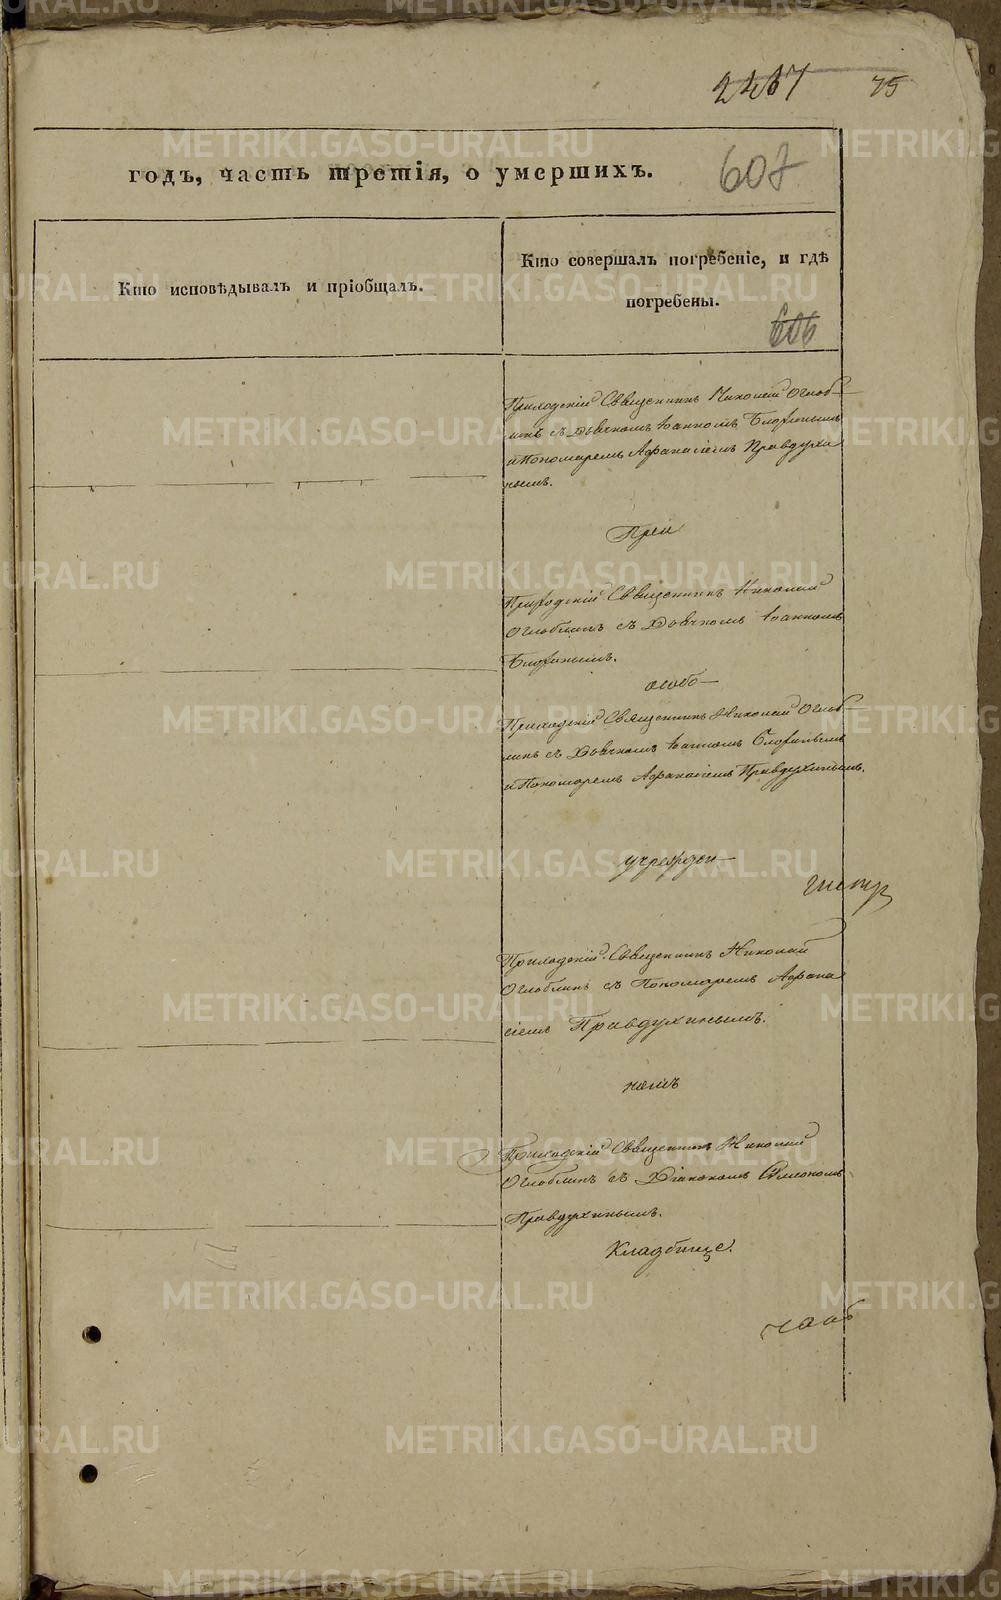 2267 75
годъ, часть третія, о умершихъ.
607
Кто исповѣдывалъ и пріобщалъ.
Кто совершалъ погребеніе, и гдѣ
погребены.
606
Приходскій Священникъ Николай Оглоб-
линъ съ Дьячкомъ Іоанномъ
и Пономаремъ Афанасіемъ Правдухи
нымъ.
При
Приходскій Священникъ Николай
Оглоблинъ съ Дьячкомъ Іоанномъ
особо-
Приходскій Священникъ Николай Оглоб-
линъ съ Дьячкомъ Іоанномъ
и Пономаремъ Афанасіемъ Правдухинымъ.
учрежден-
Приходскій Священникъ Николай
Оглоблинъ съ Пономаремъ Афана
сіемъ Правдухинымъ.
номъ
Приходскій Священникъ Николай
Оглоблинъ съ Діакономъ Симеономъ
Правдухинымъ.
Кладбище.
METRIKI.GASO-URAL.RU